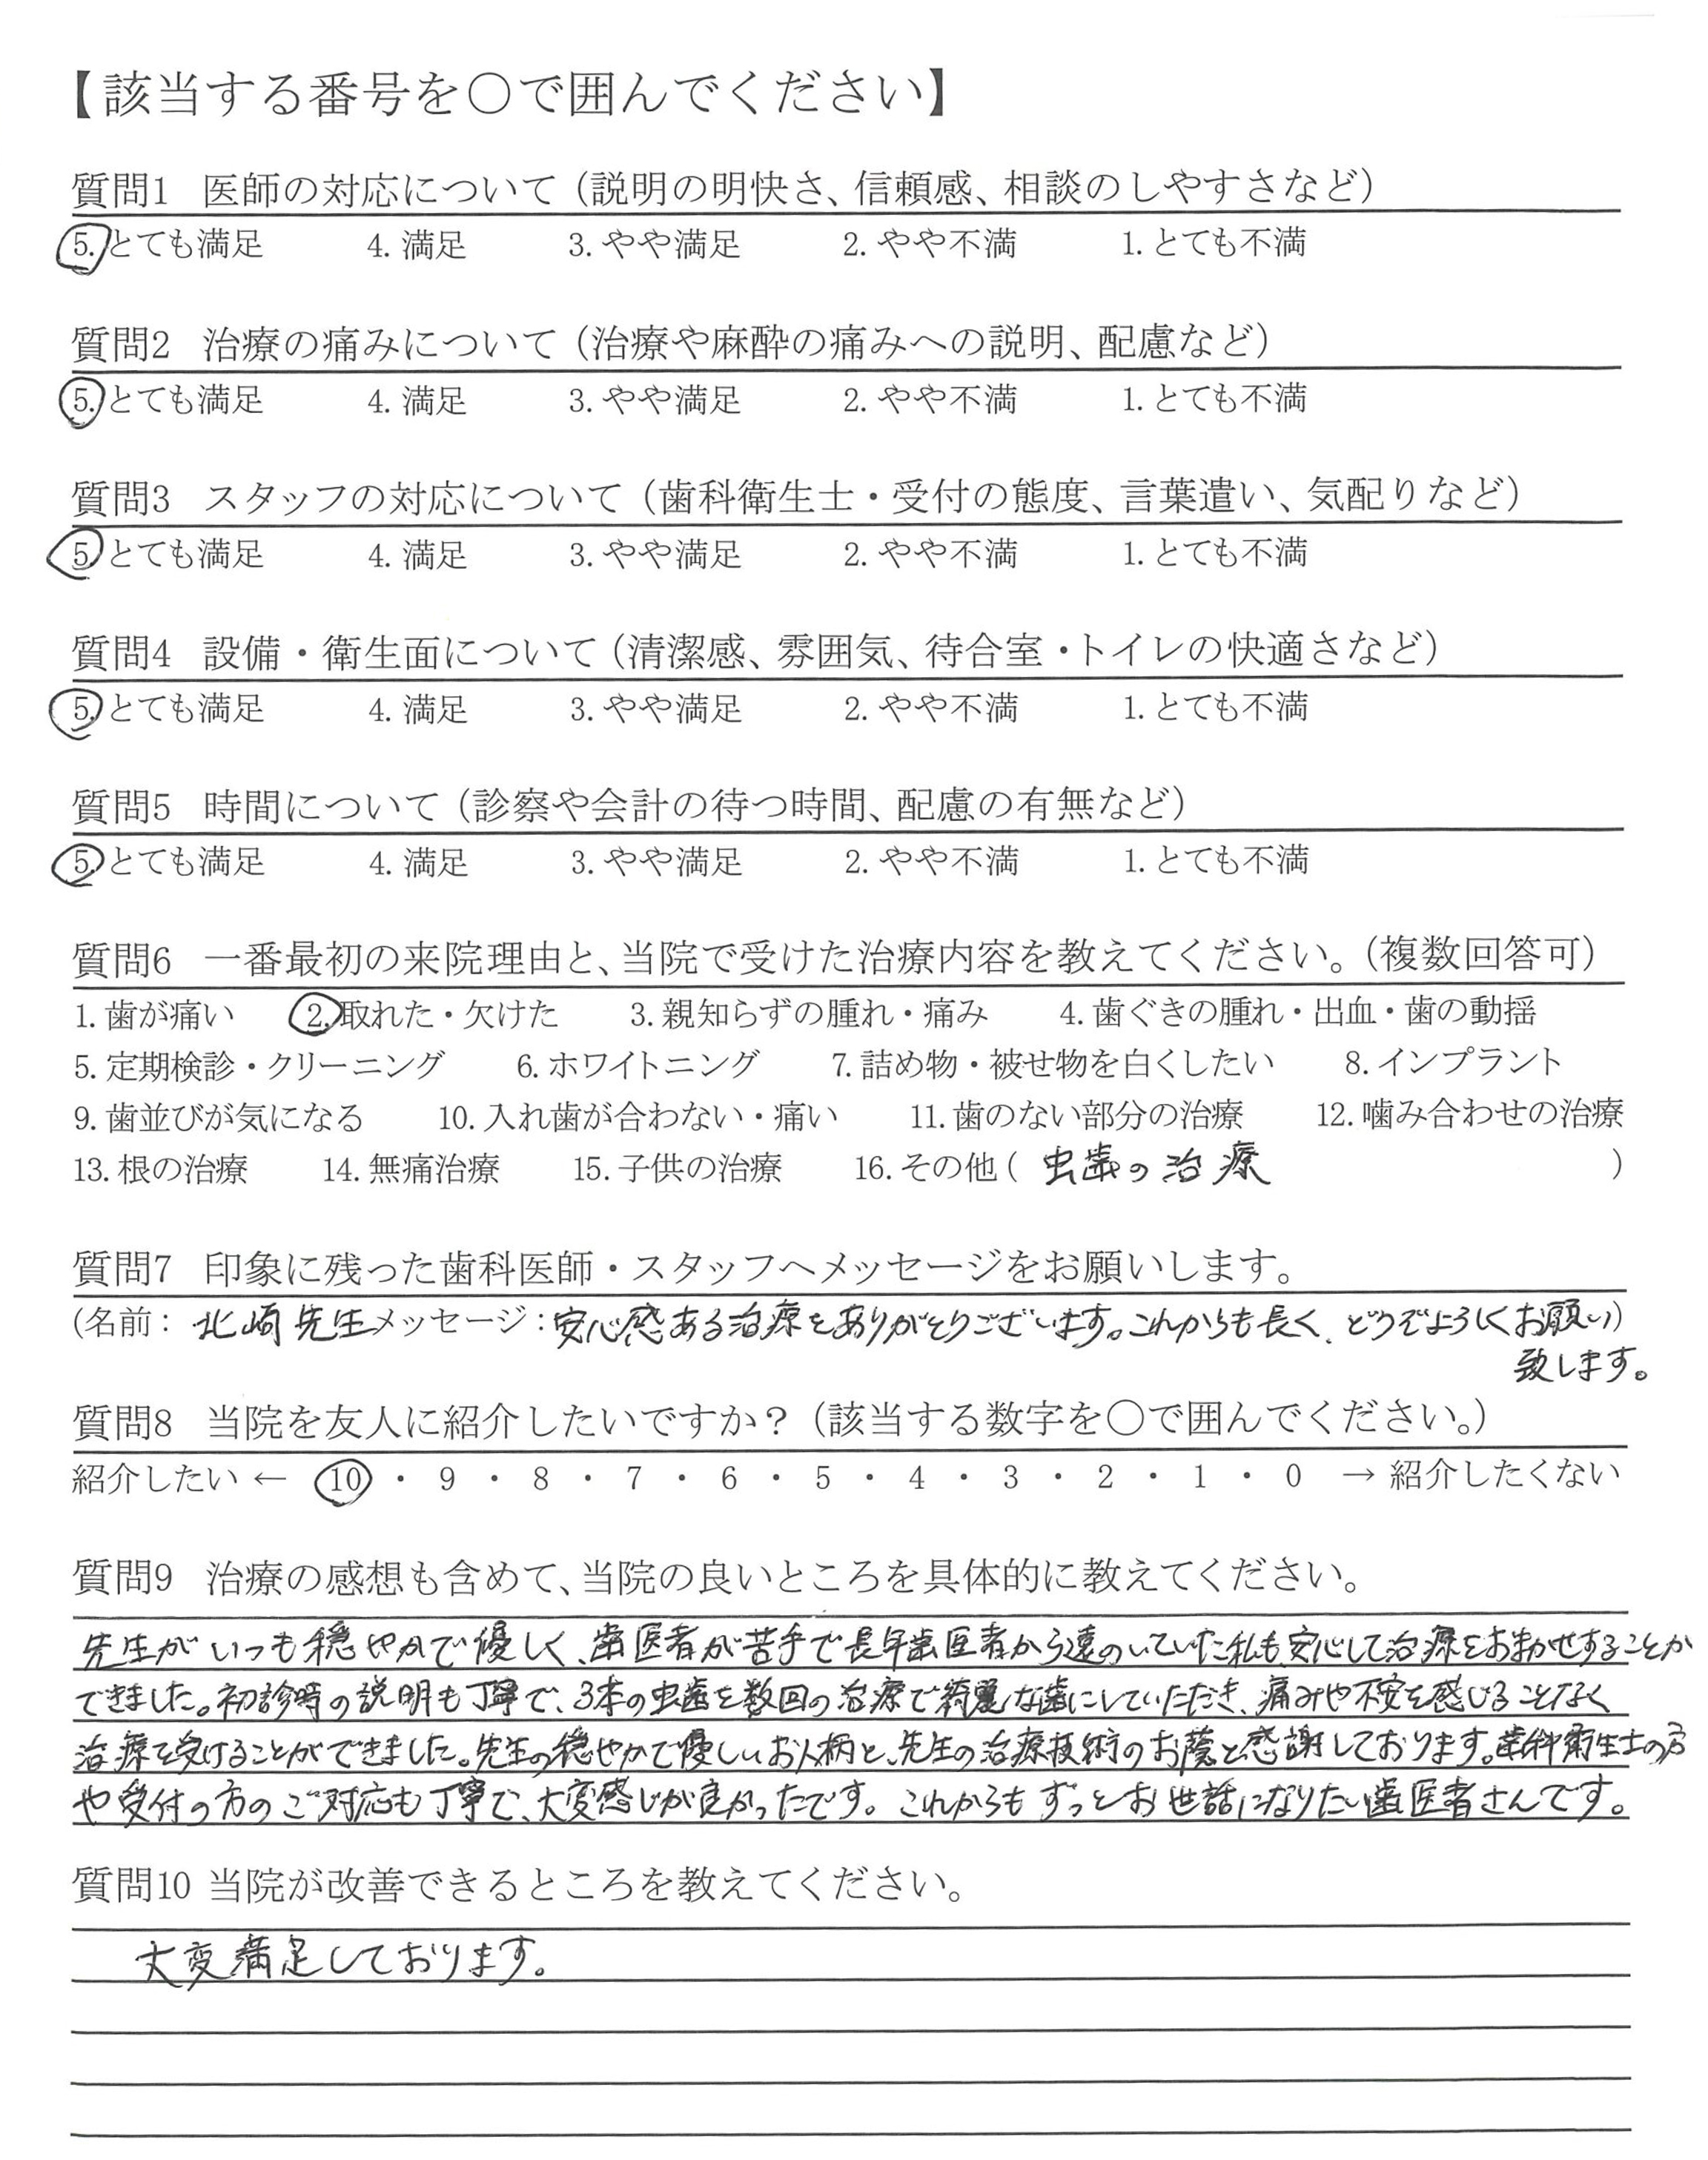 【該当する番号を〇で囲んでください】
質問1 医師の対応について（説明の明快さ、信頼感、相談のしやすさなど）
5. とても満足 4. 満足 3. やや満足 2. やや不満 1. とても不満
質問2 治療の痛みについて（治療や麻酔の痛みへの説明、配慮など）
5. とても満足 4. 満足 3. やや満足 2. やや不満 1. とても不満
質問3 スタッフの対応について（歯科衛生士・受付の態度、言葉遣い、気配りなど）
5. とても満足 4. 満足 3. やや満足 2. やや不満 1. とても不満
質問4 設備・衛生面について（清潔感、雰囲気、待合室・トイレの快適さなど）
5. とても満足 4. 満足 3. やや満足 2. やや不満 1. とても不満
質問5 時間について（診察や会計の待つ時間、配慮の有無など）
5. とても満足 4. 満足 3. やや満足 2. やや不満 1. とても不満
質問6 一番最初の来院理由と、当院で受けた治療内容を教えてください。（複数回答可）
1. 歯が痛い 2. 取れた・欠けた 3. 親知らずの腫れ・痛み 4. 歯ぐきの腫れ・出血・歯の動揺
5. 定期検診・クリーニング 6. ホワイトニング 7. 詰め物・被せ物を白くしたい 8. インプラント
9. 歯並びが気になる 10. 入れ歯が合わない・痛い 11. 歯のない部分の治療 12. 噛み合わせの治療
13. 根の治療 14. 無痛治療 15. 子供の治療 16. その他（ 虫歯の治療 ）
質問7 印象に残った歯科医師・スタッフへメッセージをお願いします。
（名前： 北崎先生 メッセージ：安心感ある治療をありがとうございます。これからも長く、どうぞよろしくお願い）
致します。
質問8 当院を友人に紹介したいですか？（該当する数字を〇で囲んでください。）
紹介したい ← 10 ・ 9 ・ 8 ・ 7 ・ 6 ・ 5 ・ 4 ・ 3 ・ 2 ・ 1 ・ 0 → 紹介したくない
質問9 治療の感想も含めて、当院の良いところを具体的に教えてください。
先生がいつも穏やかで優しく、歯医者が苦手で長年歯医者から遠のいていた私も安心して治療をおまかせすることが
できました。初診時の説明も丁寧で、3本の虫歯を数回の治療で綺麗な歯にしていただき、痛みや不安を感じることなく
治療を受けることができました。先生の穏やかで優しいお人柄と、先生の治療技術のお蔭と感謝しております。歯科衛生士の方
や受付の方のご対応も丁寧で、大変感じが良かったです。これからもずっとお世話になりたい歯医者さんです。
質問10 当院が改善できるところを教えてください。
大変満足しております。